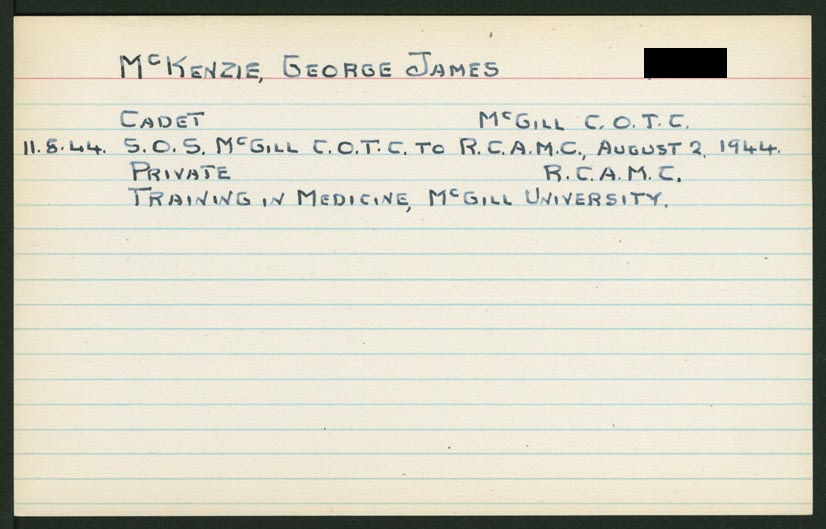 McKENZIE, GEORGE JAMES
CADET McGILL C.O.T.C.
11.8.44. S.O.S. McGILL C.O.T.C. TO R.C.A.M.C., AUGUST 2, 1944.
PRIVATE R.C.A.M.C.
TRAINING IN MEDICINE, McGILL UNIVERSITY.